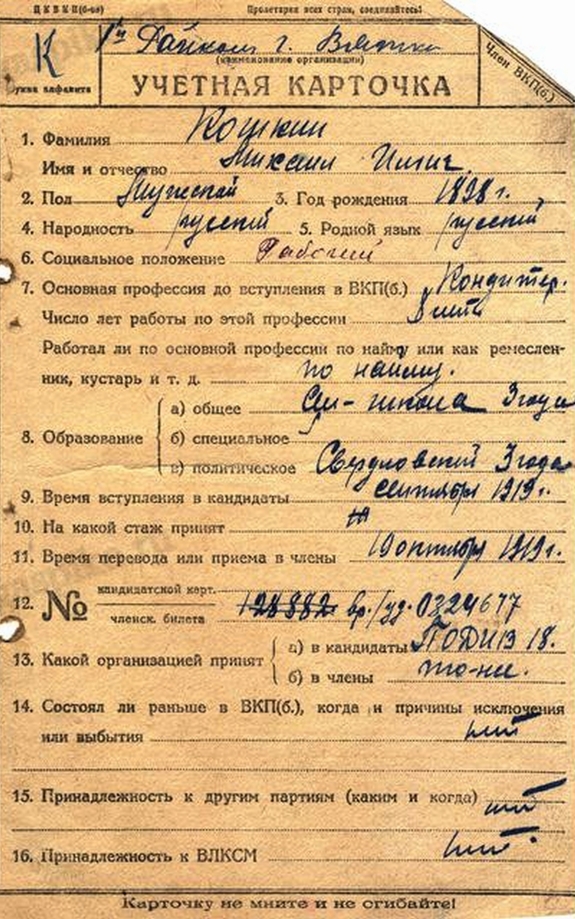 ЦКВКП(б-ов) Пролетарии всех стран, соединяйтесь!
К
буква алфавита
Райком г. Вятки
(наименование организации)
Член ВКП(б.)
УЧЕТНАЯ КАРТОЧКА
1. Фамилия Кошкин
Имя и отчество Михаил Ильич
2. Пол Мужской 3. Год рождения 1898 г.
4. Народность русский 5. Родной язык русский
6. Социальное положение Рабочий
7. Основная профессия до вступления в ВКП(б.) Кондитер.
Число лет работы по этой профессии 8 лет
Работал ли по основной профессии по найму или как ремеслен-
ник, кустарь и т. д. по найму.
8. Образование
а) общее Сел-школа 3 года
б) специальное
в) политическое Свердловский 3 года
9. Время вступления в кандидаты сентябрь 1919 г.
10. На какой стаж принят
11. Время перевода или приема в члены 19 октября 1919 г.
12. № кандидатской карт.
членск. билета 128882 вр./уд. 0324677
13. Какой организацией принят
а) в кандидаты ПОДИВ 18.
б) в члены то-же.
14. Состоял ли раньше в ВКП(б.), когда и причины исключения
или выбытия нет
15. Принадлежность к другим партиям (каким и когда) нет
16. Принадлежность к ВЛКСМ нет.
Карточку не мните и не сгибайте!